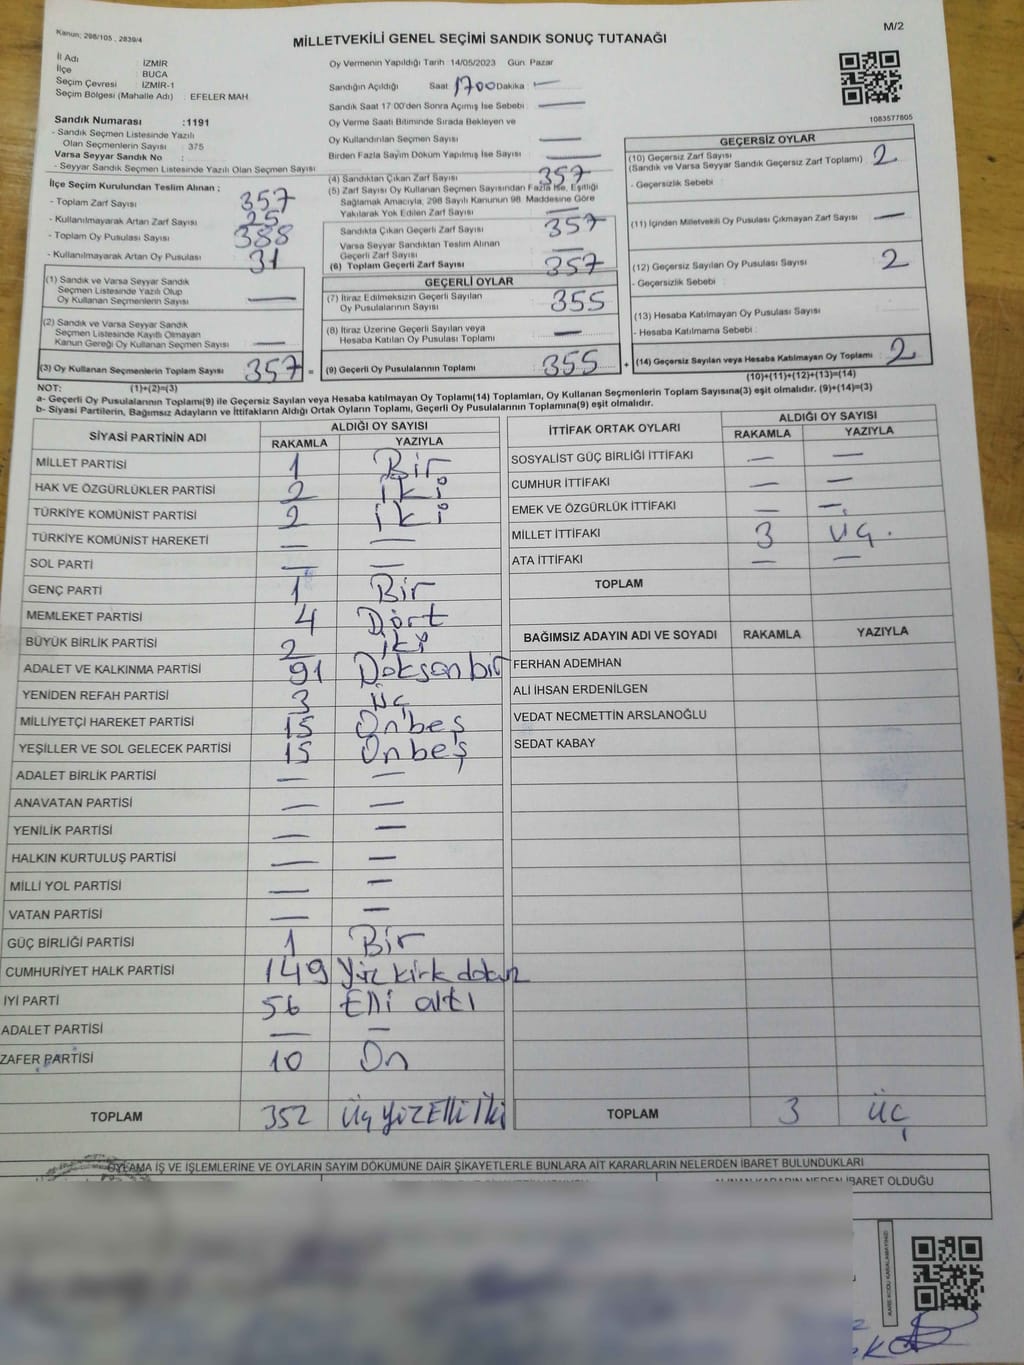 Kanun; 298/105 , 2839/4
M/2
MİLLETVEKİLİ GENEL SEÇİMİ SANDIK SONUÇ TUTANAĞI
İl Adı : İZMİR
İlçe : BUCA
Seçim Çevresi : İZMİR-1
Seçim Bölgesi (Mahalle Adı) : EFELER MAH
Sandık Numarası :1191
- Sandık Seçmen Listesinde Yazılı
Olan Seçmenlerin Sayısı : 375
Varsa Seyyar Sandık No :
- Seyyar Sandık Seçmen Listesinde Yazılı Olan Seçmen Sayısı :
Oy Vermenin Yapıldığı Tarih :14/05/2023 Gün: Pazar
Sandığın Açıldığı Saat : 1700 Dakika : —
Sandık Saat 17:00'den Sonra Açımış İse Sebebi : —
Oy Verme Saati Bitiminde Sırada Bekleyen ve
Oy Kullandırılan Seçmen Sayısı : —
Birden Fazla Sayım Döküm Yapılmış İse Sayısı : —
1083577605
İlçe Seçim Kurulundan Teslim Alınan ;
- Toplam Zarf Sayısı : 357
- Kullanılmayarak Artan Zarf Sayısı : 25
- Toplam Oy Pusulası Sayısı : 388
- Kullanılmayarak Artan Oy Pusulası : 31
(1) Sandık ve Varsa Seyyar Sandık
Seçmen Listesinde Yazılı Olup
Oy Kullanan Seçmenlerin Sayısı : —
(2) Sandık ve Varsa Seyyar Sandık
Seçmen Listesinde Kayıtlı Olmayan
Kanun Gereği Oy Kullanan Seçmen Sayısı : —
(3) Oy Kullanan Seçmenlerin Toplam Sayısı : 357 =
(4) Sandıktan Çıkan Zarf Sayısı : 357
(5) Zarf Sayısı Oy Kullanan Seçmen Sayısından Fazla İse, Eşitliği
Sağlamak Amacıyla, 298 Sayılı Kanunun 98. Maddesine Göre
Yakılarak Yok Edilen Zarf Sayısı : —
Sandıkta Çıkan Geçerli Zarf Sayısı : 357
Varsa Seyyar Sandıktan Teslim Alınan
Geçerli Zarf Sayısı : —
(6) Toplam Geçerli Zarf Sayısı : 357
GEÇERLİ OYLAR
(7) İtiraz Edilmeksizin Geçerli Sayılan
Oy Pusulalarının Sayısı : 355
(8) İtiraz Üzerine Geçerli Sayılan veya
Hesaba Katılan Oy Pusulası Toplamı : —
(9) Geçerli Oy Pusulalarının Toplamı : 355 +
GEÇERSİZ OYLAR
(10) Geçersiz Zarf Sayısı
(Sandık ve Varsa Seyyar Sandık Geçersiz Zarf Toplamı) : 2
- Geçersizlik Sebebi :
(11) İçinden Milletvekili Oy Pusulası Çıkmayan Zarf Sayısı : —
(12) Geçersiz Sayılan Oy Pusulası Sayısı : 2
- Geçersizlik Sebebi :
(13) Hesaba Katılmayan Oy Pusulası Sayısı :
- Hesaba Katılmama Sebebi :
(14) Geçersiz Sayılan veya Hesaba Katılmayan Oy Toplamı : 2
NOT: (1)+(2)=(3) (10)+(11)+(12)+(13)=(14)
a- Geçerli Oy Pusulalarının Toplamı(9) ile Geçersiz Sayılan veya Hesaba katılmayan Oy Toplamı(14) Toplamları, Oy Kullanan Seçmenlerin Toplam Sayısına(3) eşit olmalıdır. (9)+(14)=(3)
b- Siyasi Partilerin, Bağımsız Adayların ve İttifakların Aldığı Ortak Oyların Toplamı, Geçerli Oy Pusulalarının Toplamına(9) eşit olmalıdır.
SİYASİ PARTİNİN ADI ALDIĞI OY SAYISI
RAKAMLA YAZIYLA
MİLLET PARTİSİ 1 Bir
HAK VE ÖZGÜRLÜKLER PARTİSİ 2 iki
TÜRKİYE KOMÜNİST PARTİSİ 2 iki
TÜRKİYE KOMÜNİST HAREKETİ — —
SOL PARTİ — —
GENÇ PARTİ 1 Bir
MEMLEKET PARTİSİ 4 Dört
BÜYÜK BİRLİK PARTİSİ 2 iki
ADALET VE KALKINMA PARTİSİ 91 Doksan bir
YENİDEN REFAH PARTİSİ 3 üç
MİLLİYETÇİ HAREKET PARTİSİ 15 On beş
YEŞİLLER VE SOL GELECEK PARTİSİ 15 On beş
ADALET BİRLİK PARTİSİ — —
ANAVATAN PARTİSİ — —
YENİLİK PARTİSİ — —
HALKIN KURTULUŞ PARTİSİ — —
MİLLİ YOL PARTİSİ — —
VATAN PARTİSİ — —
GÜÇ BİRLİĞİ PARTİSİ 1 Bir
CUMHURİYET HALK PARTİSİ 149 Yüz kırk dokuz
İYİ PARTİ 56 Elli altı
ADALET PARTİSİ — —
ZAFER PARTİSİ 10 On
TOPLAM 352 üç YÜZ Elli İki
İTTİFAK ORTAK OYLARI ALDIĞI OY SAYISI
RAKAMLA YAZIYLA
SOSYALİST GÜÇ BİRLİĞİ İTTİFAKI — —
CUMHUR İTTİFAKI — —
EMEK VE ÖZGÜRLÜK İTTİFAKI — —
MİLLET İTTİFAKI 3 üç.
ATA İTTİFAKI — —
TOPLAM
BAĞIMSIZ ADAYIN ADI VE SOYADI RAKAMLA YAZIYLA
FERHAN ADEMHAN
ALİ İHSAN ERDENİLGEN
VEDAT NECMETTİN ARSLANOĞLU
SEDAT KABAY
TOPLAM 3 üç
OYLAMA İŞ VE İŞLEMLERİNE VE OYLARIN SAYIM DÖKÜMÜNE DAİR ŞİKAYETLERLE BUNLARA AİT KARARLARIN NELERDEN İBARET BULUNDUKLARI
ALINAN KARARIN NEDEN İBARET OLDUĞU
KARE KODU KARALAMAYINIZ!